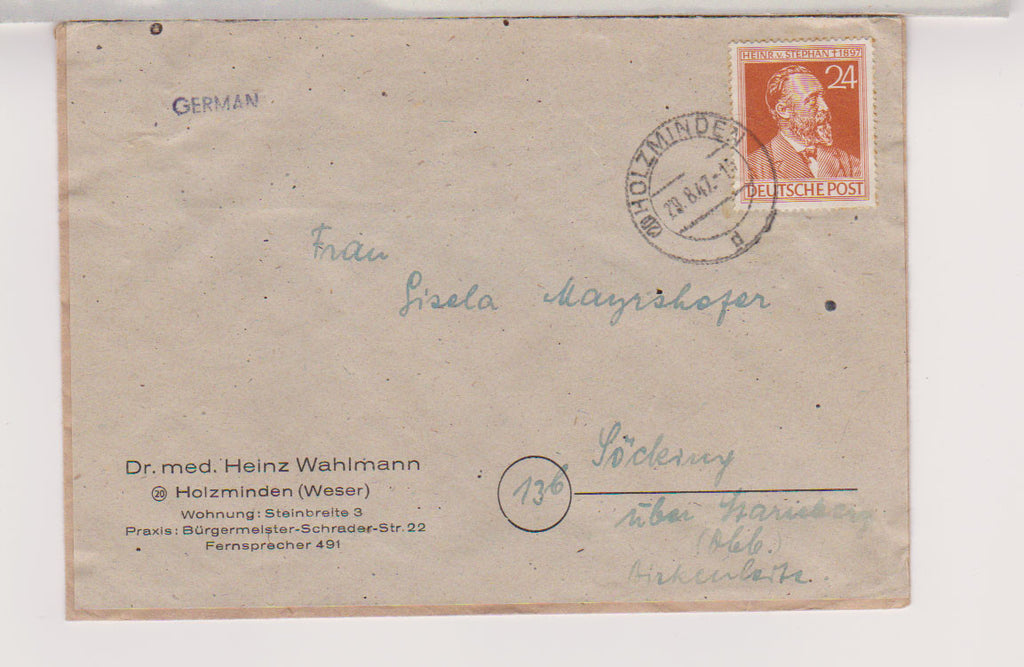 GERMAN
HEINR. v. STEPHAN † 1897
24
DEUTSCHE POST
(20) HOLZMINDEN
8.47.-
p
Frau
Gisela Mayrshofer
Söcking
136
über Starnberg
(Obb.)
Dr. med. Heinz Wahlmann
(20) Holzminden (Weser)
Wohnung: Steinbreite 3
Praxis: Bürgermeister-Schrader-Str. 22
Fernsprecher 491